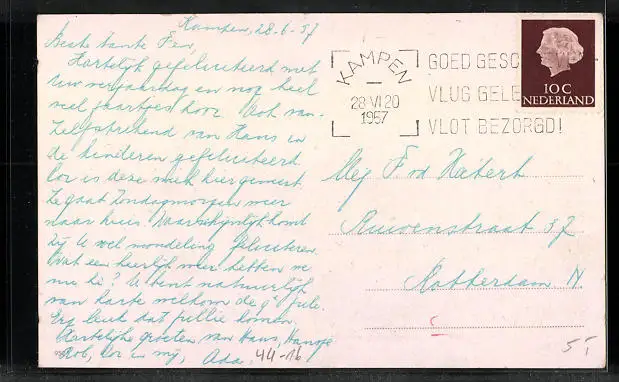 Kampen, 28-6-57
Beste tante Fen,
Hartelijk gefeliciteerd met
Uw verjaardag en nog heel
veel jaartjes hoor. Ook van-
zelfsprekend van Hans en
de kinderen gefeliciteerd
Cor is deze week hier geweest.
Ze gaat Zondagmorgen weer
naar huis. Waarschijnlijk komt
zij U wel mondeling feliciteren.
Wat een heerlijk weer hebben we
nu hè? U bent natuurlijk
van harte welkom de 9e Juli.
Erg leuk dat jullie komen.
Hartelijke groeten van Hans, Hansje
Rob, Cor en mij, Ada.
44-16
KAMPEN
28 VI 20
1957
GOED GESC
VLUG GELE
VLOT BEZORGD!
10 C
NEDERLAND
Mej F vd
straat 37
Rotterdam N.